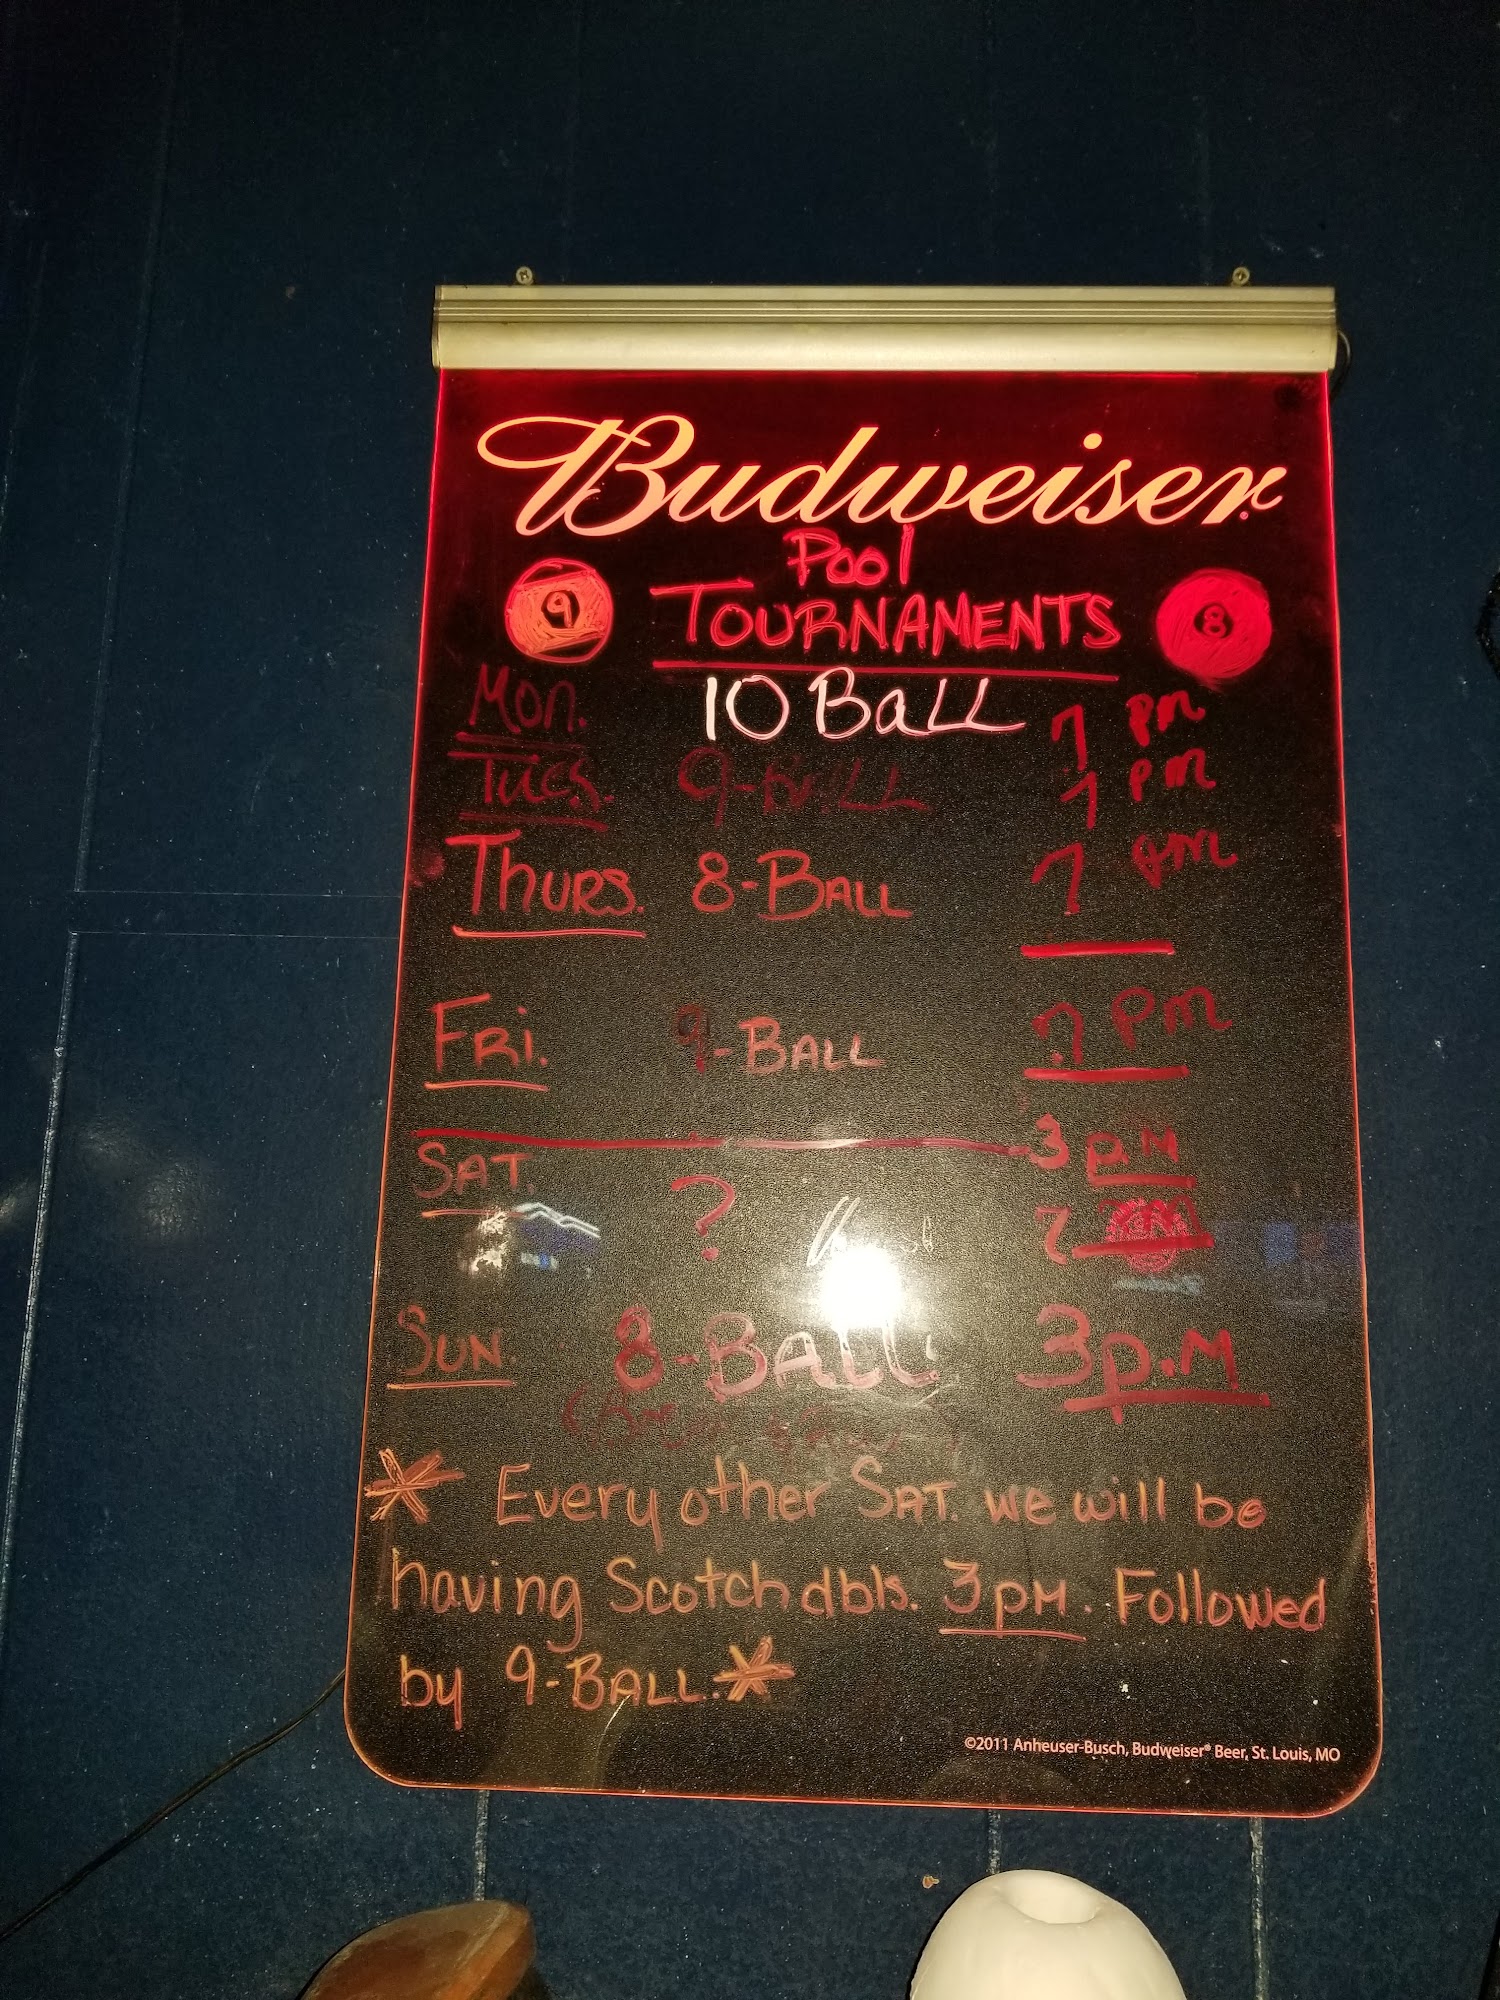 Budweiser
Pool
9 TOURNAMENTS 8
Mon. 10 BALL 7 pm
Tues. 9-BALL 7 pm
THURS. 8-BALL 7 pm
FRI. 9-BALL 7 pm
SAT. ? 3 PM
?
SUN. 8-BALL 3 p.M
* Every other SAT. we will be
having Scotch dbls. 3 PM. Followed
by 9-BALL. *
©2011 Anheuser-Busch, Budweiser® Beer, St. Louis, MO